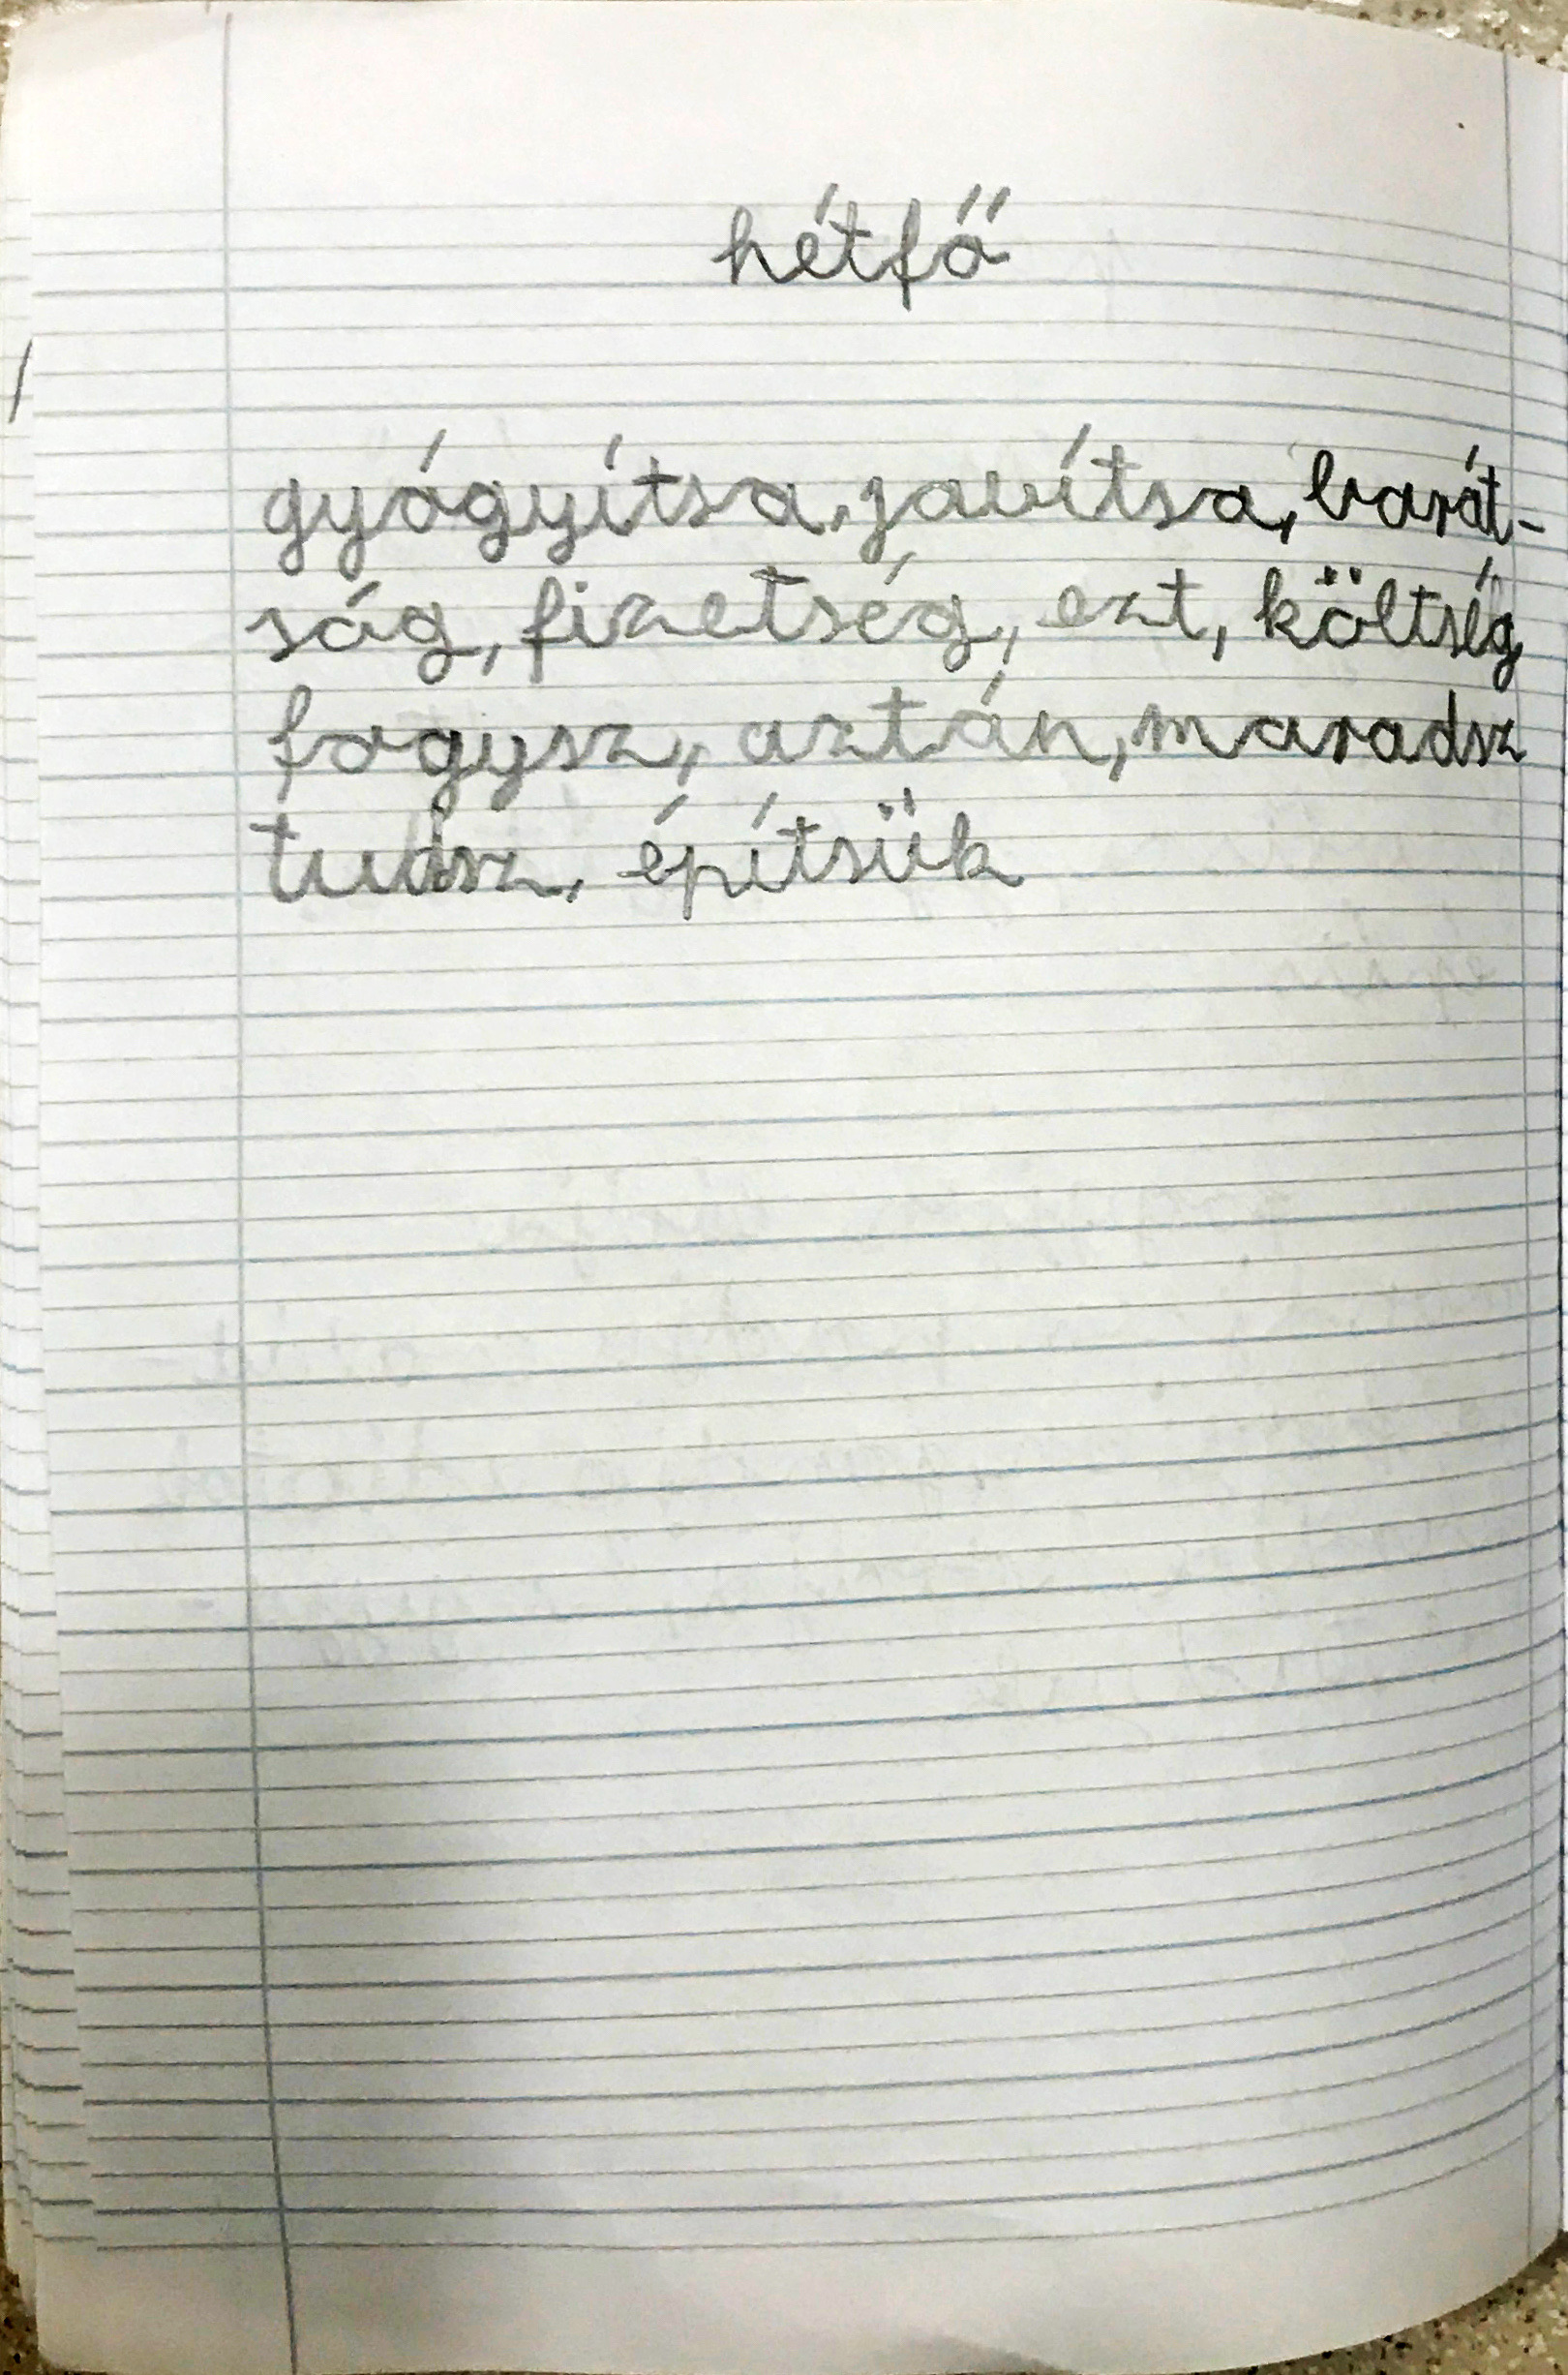 hétfő
gyógyítsa, javítsa, barát-
ság, fizetség, ezt, költség
fogysz, aztán, maradsz
tudsz, építsük